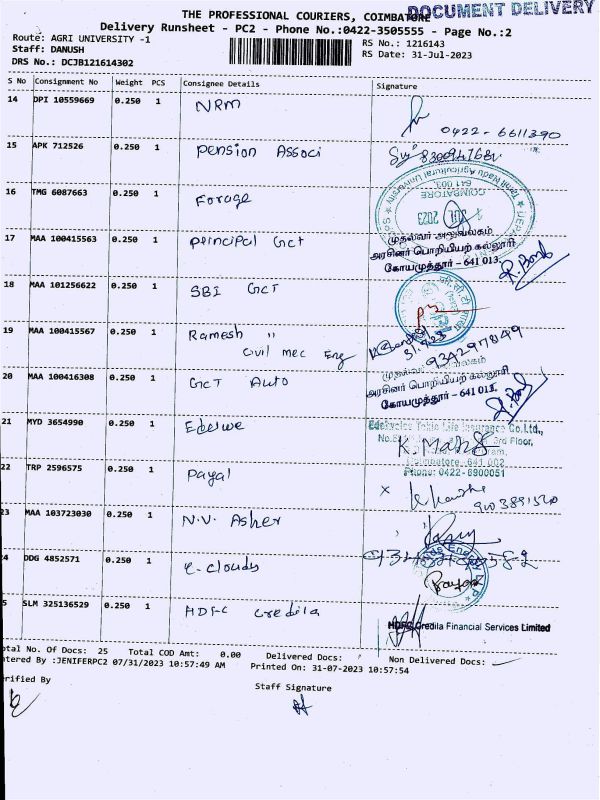 DOCUMENT DELIVERY
THE PROFESSIONAL COURIERS, COIMBATORE
Delivery Runsheet - PC2 - Phone No.:0422-3505555 - Page No.:2
Route: AGRI UNIVERSITY -1
RS No.: 1216143
Staff: DANUSH
RS Date: 31-Jul-2023
DRS No.: DCJB121614302
S No Consignment No Weight PCS Consignee Details Signature
14 DPI 10559669 0.250 1 NRM
0422-6611390
15 APK 712526 0.250 1 Pension Associ
Tamil Nadu Agricultural University
641 003.
COIMBATORE
16 TMG 6087663 0.250 1 Forage
2023
17 MAA 100415563 0.250 1 principal GCT
முதல்வர் அலுவலகம்
அரசினர் பொறியியற் கல்லூரி
கோயமுத்தூர் – 641 013.
18 MAA 101256622 0.250 1 SBI GCT
19 MAA 100415567 0.250 1 Ramesh "
Civil mec Eng
9342971849
20 MAA 100416308 0.250 1 GCT Auto
அரசினர் பொறியியற் கல்லூரி
கோயமுத்தூர் – 641 013.
21 MYD 3654990 0.250 1 Edelwe
Edelweiss Tokio Life Insurance Co.Ltd.,
3rd Floor,
Coimbatore. 641 002
Phone: 0422-6900051
22 TRP 2596575 0.250 1 Payal
23 MAA 103723030 0.250 1 N.V. Asher
24 DDG 4852571 0.250 1 e-clouds
5 SLM 325136529 0.250 1 HDFC credila
HDFC Credila Financial Services Limited
otal No. Of Docs: 25 Total COD Amt: 0.00 Delivered Docs: Non Delivered Docs:
ntered By :JENIFERPC2 07/31/2023 10:57:49 AM Printed On: 31-07-2023 10:57:54
erified By
Staff Signature